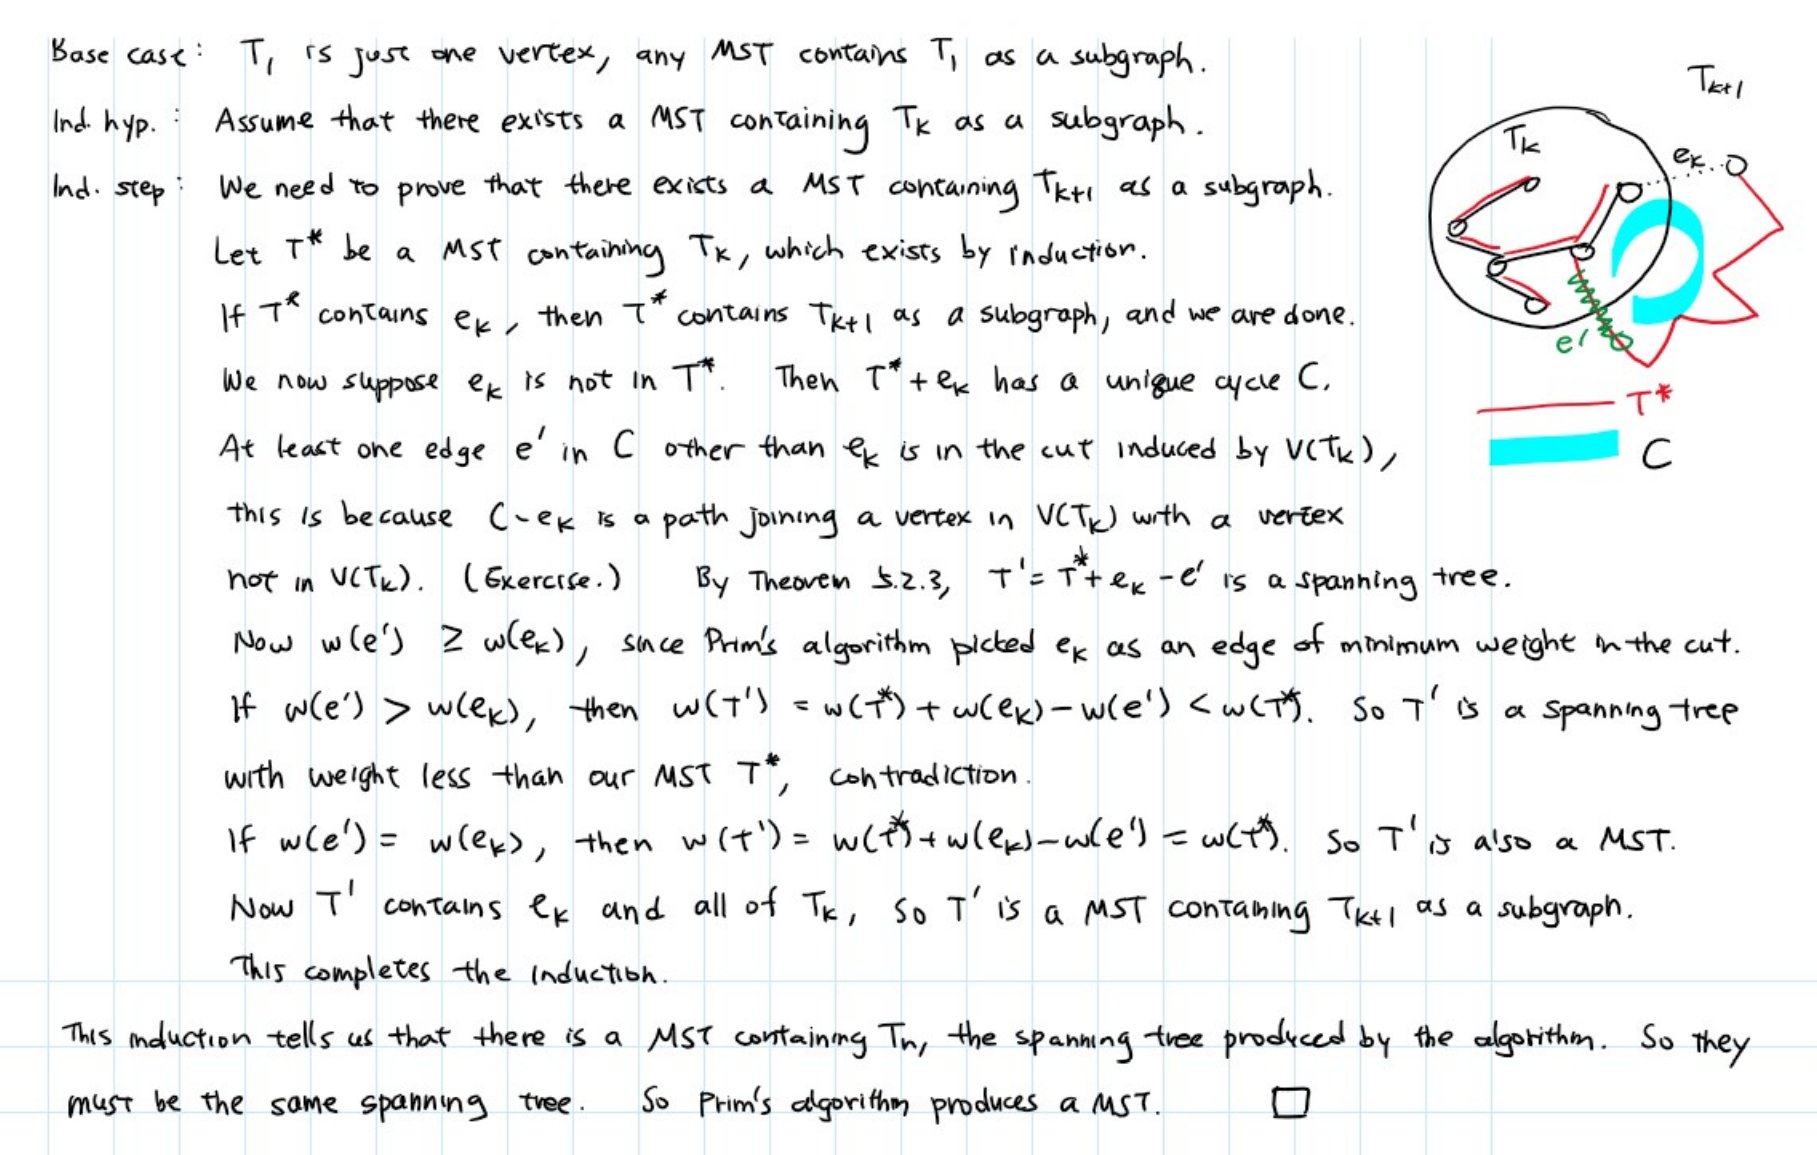 Base case: T₁ is just one vertex, any MST contains T₁ as a subgraph.
Ind. hyp.: Assume that there exists a MST containing Tₖ as a subgraph.
Ind. step: We need to prove that there exists a MST containing Tₖ₊₁ as a subgraph.
Let T* be a MST containing Tₖ, which exists by induction.
If T* contains eₖ, then T* contains Tₖ₊₁ as a subgraph, and we are done.
We now suppose eₖ is not in T*. Then T* + eₖ has a unique cycle C.
At least one edge e' in C other than eₖ is in the cut induced by V(Tₖ),
this is because C - eₖ is a path joining a vertex in V(Tₖ) with a vertex
not in V(Tₖ). (Exercise.) By Theorem 5.2.3, T' = T* + eₖ - e' is a spanning tree.
Now w(e') ≥ w(eₖ), since Prim's algorithm picked eₖ as an edge of minimum weight in the cut.
If w(e') > w(eₖ), then w(T') = w(T*) + w(eₖ) - w(e') < w(T*). So T' is a spanning tree
with weight less than our MST T*, contradiction.
If w(e') = w(eₖ), then w(T') = w(T*) + w(eₖ) - w(e') = w(T*). So T' is also a MST.
Now T' contains eₖ and all of Tₖ, so T' is a MST containing Tₖ₊₁ as a subgraph.
This completes the induction.
This induction tells us that there is a MST containing Tₙ, the spanning tree produced by the algorithm. So they
must be the same spanning tree. So Prim's algorithm produces a MST. □
Tₖ₊₁
Tₖ
eₖ
e'
T*
C